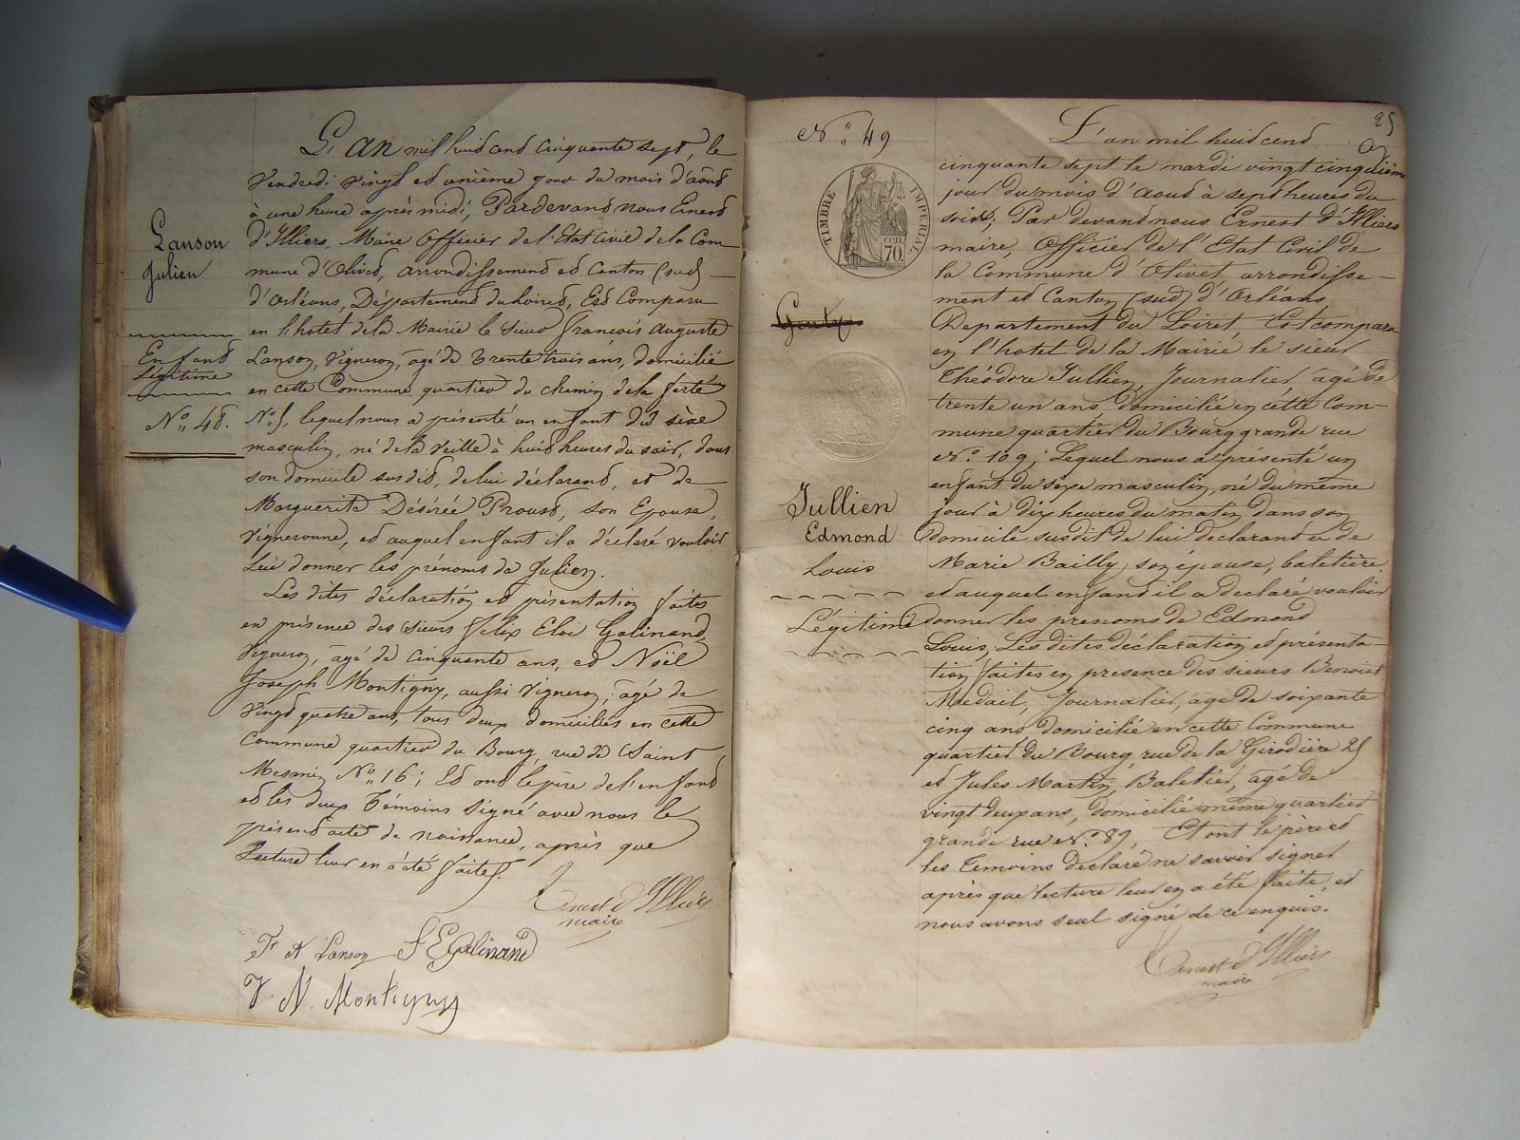 Lanson
Julien
Enfant
Légitime
N° 48.
L'an mil huit cent cinquante sept, le
Vendredi vingt et unième jour du mois d'août
à une heure après midi, Pardevant nous Ernest
d'Illiers, Maire Officier de l'Etat Civil de la Com
mune d'Olivet, arrondissement et Canton (sud)
d'Orléans, Département du Loiret, Est Comparu
en l'hotel de la Mairie le Sieur François Auguste
Lanson, Vigneron, âgé de trente trois ans, domicilié
en cette Commune quartier du chemin de la ferté
N° 5, lequel nous a présenté un enfant du sèxe
masculin, né de la Veille à huit heures du soir, dans
son domicile susdit, de lui déclarant, et de
Marguerite Désirée Proust, son Epouse,
Vigneronne, et auquel enfant il a déclaré vouloir
lui donner les prénoms de Julien.
Les dites déclaration et présentation faites
en présence des Sieurs Félix Eloi Galinand,
Vigneron, âgé de cinquante ans, et Noël
Joseph Montigny, aussi Vigneron, âgé de
Vingt quatre ans, tous deux domiciliés en cette
Commune quartier du Bourg, rue de Saint
Mesmin N° 16; Et ont le père de l'enfant
et les deux Témoins Signé avec nous le
présent acte de naissance, après que
Lecture leur en a été faite.
Ernest d'Illiers
maire
F A Lanson F E Galinand
V. N. Montigny
25
N° 49
TIMBRE IMPERIAL
70
Jullien
Edmond
Louis
Légitime
L'an mil huit cent
cinquante sept le mardi vingt cinquième
jour du mois d'Aout à sept heures du
soir; Par devant nous Ernest d'Illiers
maire, Officier de l'Etat Civil de
la Commune d'Olivet, arrondisse-
ment et Canton (sud) d'Orléans
Departement du Loiret, Est comparu
en l'hotel de la Mairie le sieur
Théodore Jullien, Journalier, âgé de
trente un ans, domicilié en cette Com-
mune quartier du Bourg grande rue
N° 109; Lequel nous a présenté un
enfant du sexe masculin, né du même
jour à dix heures du matin dans son
domicile susdit de lui declarant et de
Marie Bailly, son épouse, batelière
et auquel enfant il a déclaré vouloir
donner les prenoms de Edmond
Louis, Les dites déclaration et présenta-
tion faites en presence des sieurs Benoist
Medail, Journalier, age de soixante
cinq ans domicilié en cette Commune
quartier du Bourg rue de la Girodière 25
et Jules Martin, Batelier, âgé de
vingt deux ans, domicilié même quartier
grande rue N° 89, Et ont le père et
les Temoins declaré ne savoir signer
après que lecture leur en a été faite, et
nous avons seul signé de ce enquis.
Ernest d'Illiers
maire